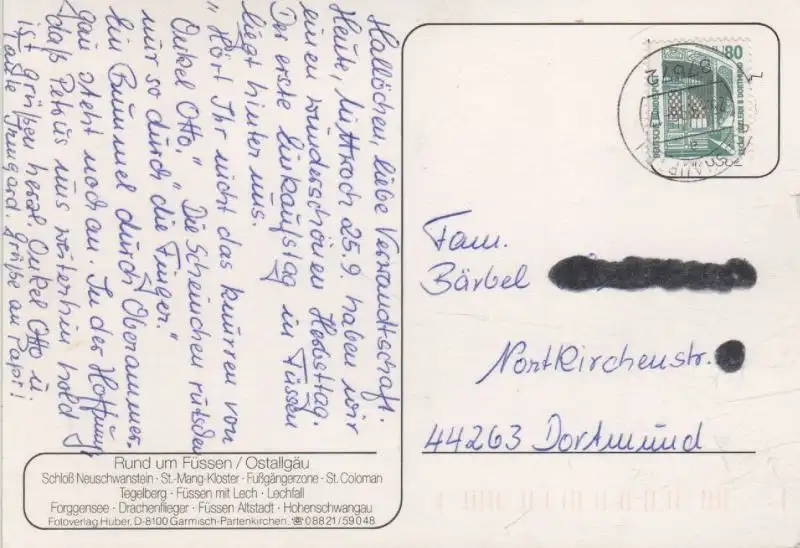 Hallöchen, liebe Verwandtschaft.
Heute, Mittwoch 25.9. haben wir
einen wunderschönen Herbsttag.
Der erste Einkaufstag in Füssen
liegt hinter uns.
„Hört Ihr nicht das knurren von
Onkel Otto." Die Scheinchen rutschen
nur so durch die Finger."
Ein Bummel durch Oberammer-
gau steht noch an. In der Hoffnung,
daß Petrus uns weiterhin hold
ist grüßen herzl. Onkel Otto u.
Tante Irmgard. Grüße an Papi!
80
Fam.
Bärbel
Nortkirchenstr.
44263 Dortmund
Rund um Füssen / Ostallgäu
Schloß Neuschwanstein · St.-Mang-Kloster · Fußgängerzone · St. Coloman
Tegelberg · Füssen mit Lech · Lechfall
Forggensee · Drachenflieger · Füssen Altstadt · Hohenschwangau
Fotoverlag Huber, D-8100 Garmisch-Partenkirchen, ☏ 08821/59048